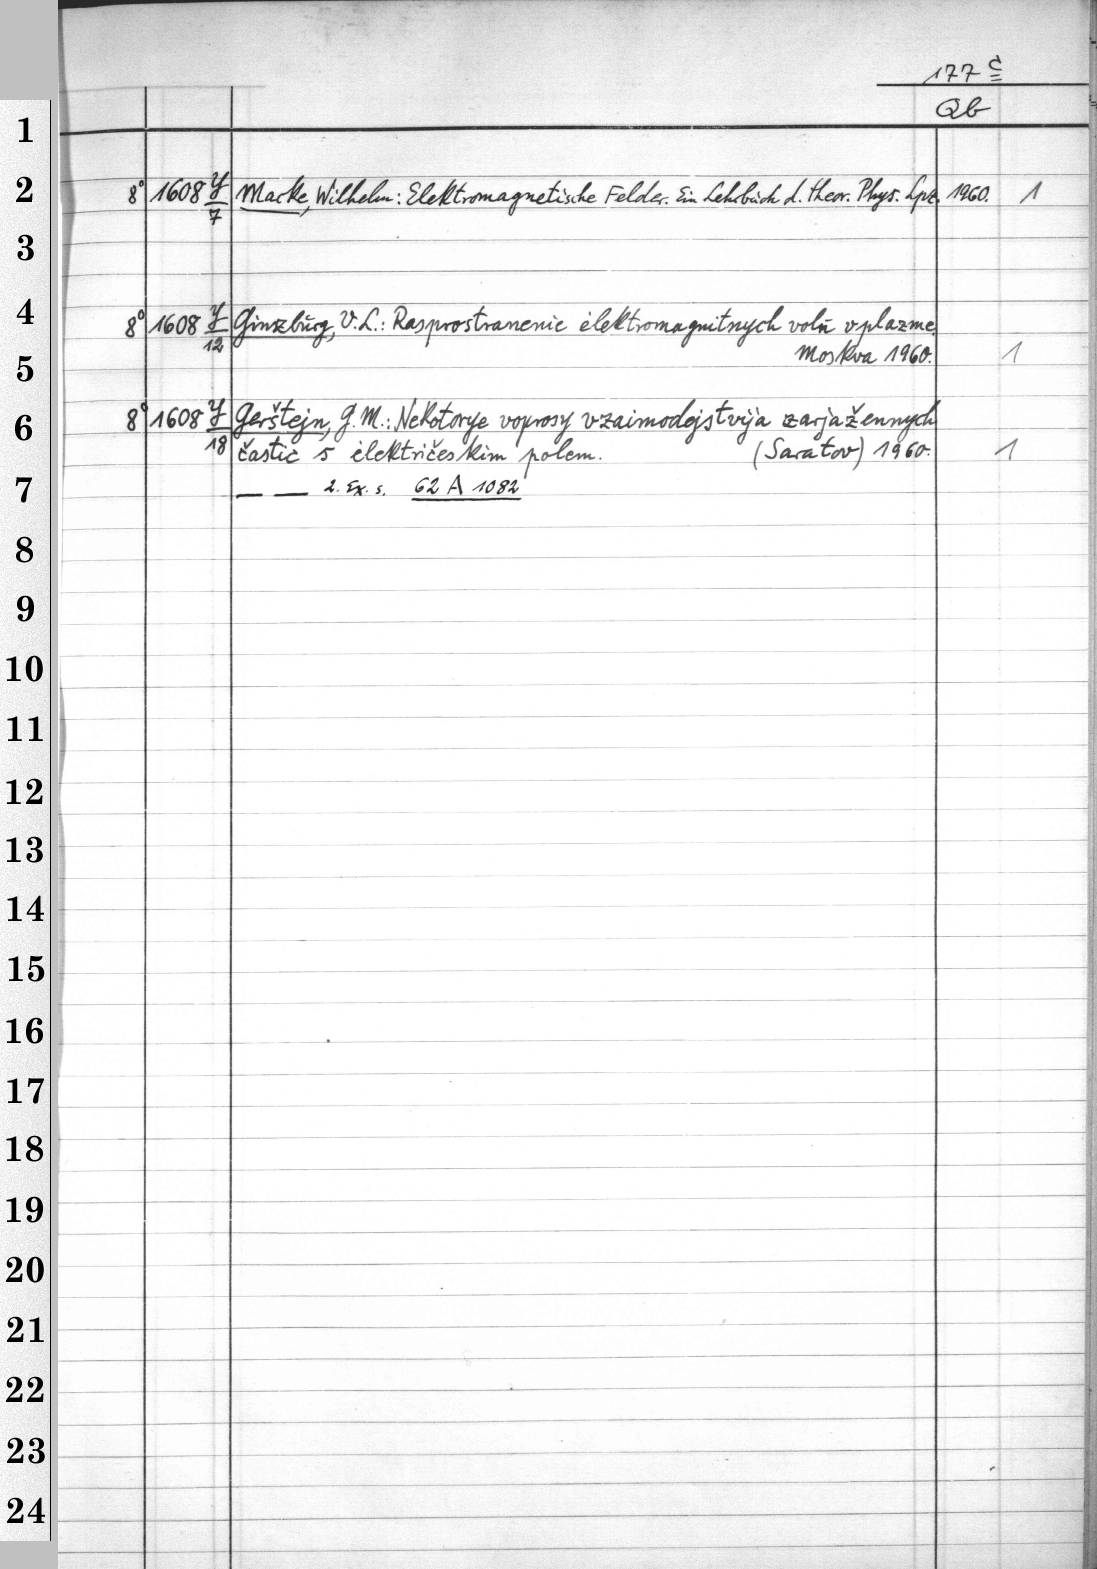 177 c
Qb
1
2 8° 1608 y/7 Macke, Wilhelm: Elektromagnetische Felder. Ein Lehrbuch d. theor. Phys. Lpz. 1960. 1
3
4 8° 1608 y/12 Ginzburg, V. L.: Rasprostranenie ėlektromagnitnych voln v plazme.
5 Moskva 1960. 1
6 8° 1608 y/18 Gerštejn, G. M.: Nekotorye voprosy vzaimodejstvija zarjažennych
častic s ėlektričeskim polem. (Saratov) 1960. 1
7 — — 2. Ex. s. 62 A 1082
8
9
10
11
12
13
14
15
16
17
18
19
20
21
22
23
24